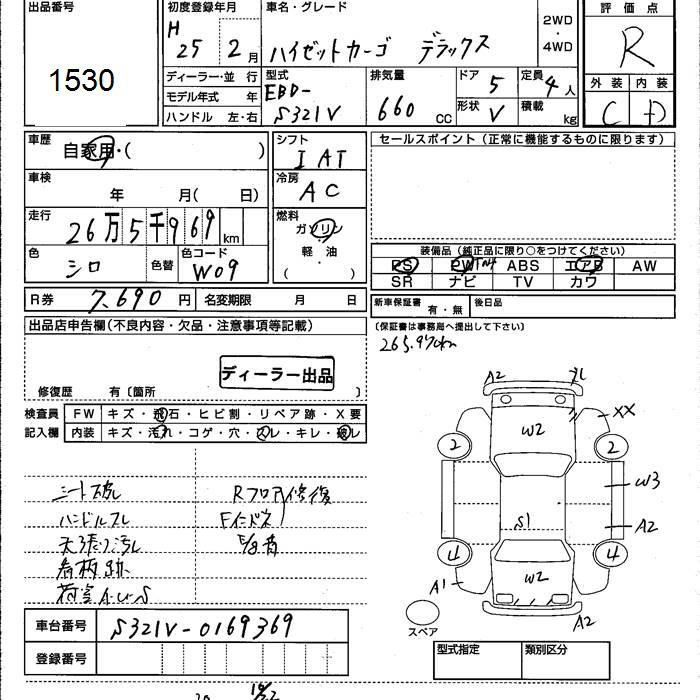 出品番号
1530
初度登録年月
H 25 年 2 月
車名・グレード
ハイゼットカーゴ デラックス
2WD
・
4WD
評価点
R
外装 内装
C D
ディーラー・並 行
モデル年式 年
ハンドル 左・右
型式
EBD-
S321V
排気量
660 CC
ドア 5
形状 V
定員 4 人
積載 kg
車歴
自家用・( )
シフト
I AT
車検
年 月( 日)
冷房
AC
走行
26万5千969 km
燃料
ガソリン
軽・油
( )
色
シロ
色替
色コード
W09
R券 7,690 円
名変期限 月 日
セールスポイント (正常に機能するものに限ります)
装備品 (純正品に限り○をつけてください)
PS PW ABS エアB AW
SR ナビ TV カワ
新車保証書 有・無
後日品
(保証書は事務局へ提出して下さい)
265,970km
出品店申告欄(不良内容・欠品・注意事項等記載)
ディーラー出品
修復歴 有〔箇所 〕
検査員 FW キズ・飛石・ヒビ割・リペア跡・X要
記入欄 内装 キズ・汚れ・コゲ・穴・スレ・キレ・破レ
シート破レ
ハンドルスレ
天張り汚レ
看板跡
Rフロア修復
A2
XX
W2
2 2
W3
S1
A2
4 4
A1
W2
A2
スペア
車台番号 S321V-0169369
登録番号
型式指定 類別区分